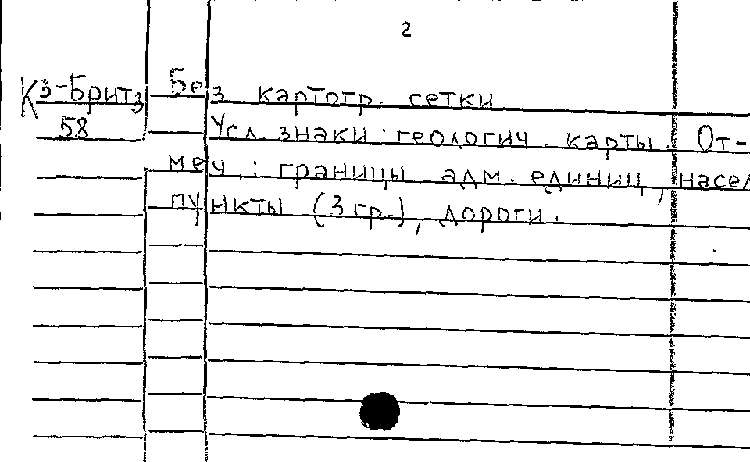 2
Кз-Бритз Без картогр. сетки
58 Усл. знаки: геологич. карты. От-
меч.: границы адм. единиц, насел
пункты (3 гр.), дороги.